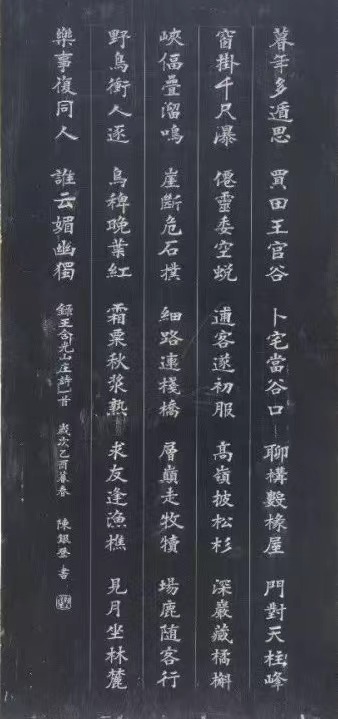 暮年多遁思 買田王官谷 卜宅當谷口 聊構數椽屋 門對天柱峰
窗掛千尺瀑 僊靈委空蛻 逋客遂初服 高嶺披松杉 深巖藏橘槲
峽偪疊溜鳴 崖斷危石撲 細路連棧橋 層巔走牧犢 場鹿随客行
野鳥衝人逐 烏椑晚葉紅 霜粟秋漿熟 求友逢漁樵 見月坐林麓
樂事復同人 誰云媚幽獨 錄王含光山庄詩一首 歲次乙酉暮春 陳銀 書